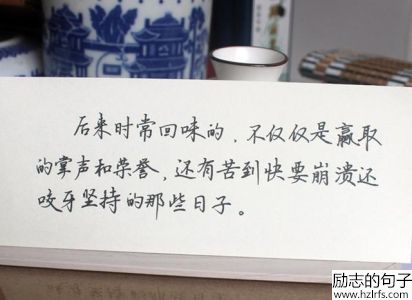 后来时常回味的，不仅仅是赢取
的掌声和荣誉，还有苦到快要崩溃还
咬牙坚持的那些日子。
励志的句子
www.hzlrfs.com